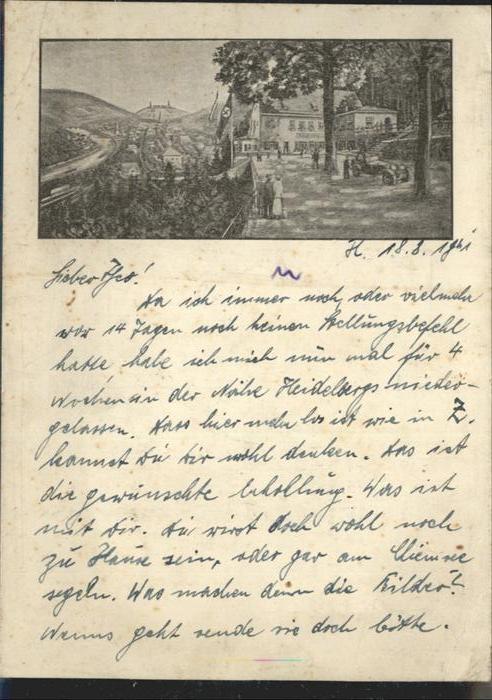 H. 18.8.1941
Lieber Theo!
Da ich immer noch, oder vielmehr
vor 14 Tagen noch keinen Stellungsbefehl
hatte habe ich mich nun mal für 4
Wochen in der Nähe Heidelbergs nieder-
gelassen. Dass hier mehr los ist wie in Z.
kannst Du Dir wohl denken. Das ist
die gewünschte Erhollung. Was ist
mit Dir. Du wirst doch wohl noch
zu Hause sein, oder gar am Chiemsee
segeln. Was machen denn die Bilder?
Wenns geht sende sie doch bitte.